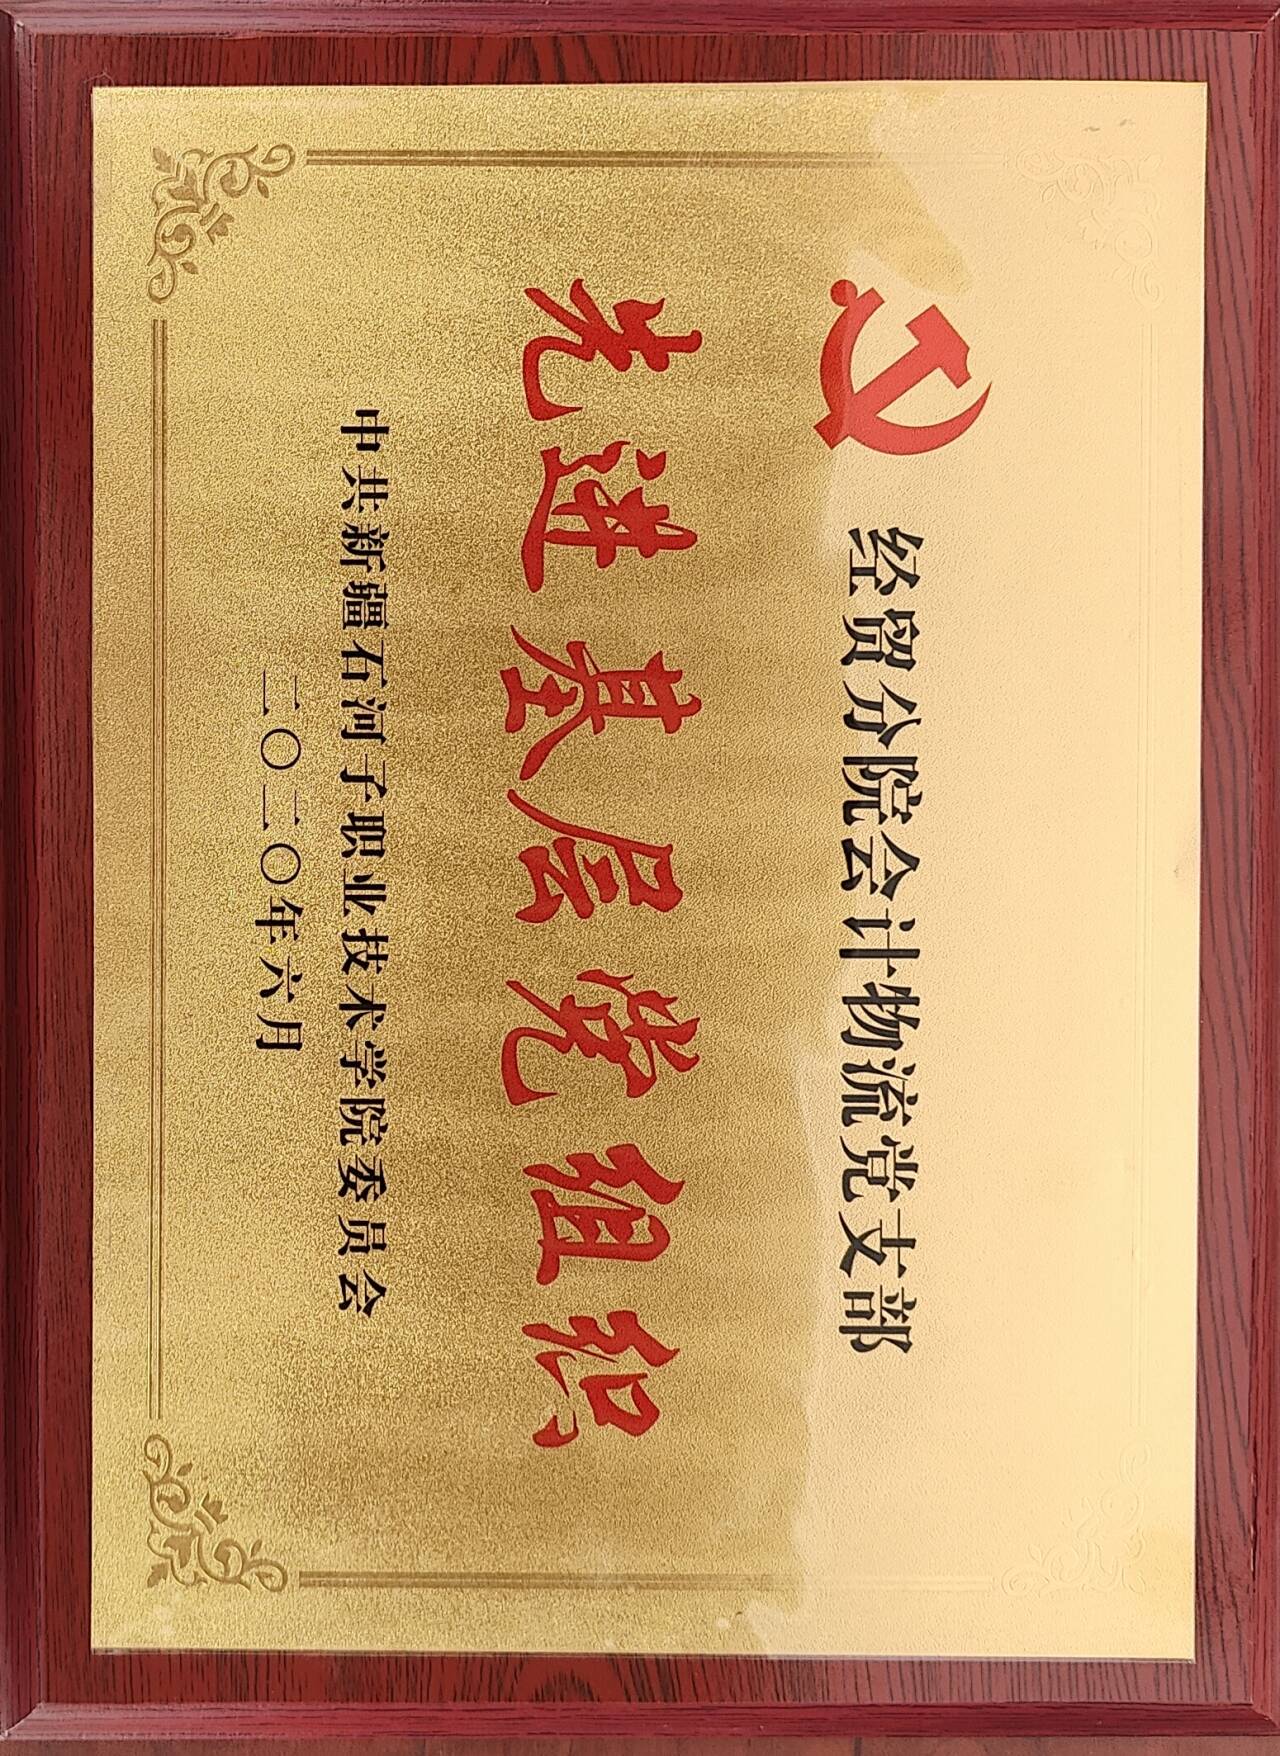 经贸分院会计物流党支部
先进基层党组织
中共新疆石河子职业技术学院委员会
二〇二〇年六月